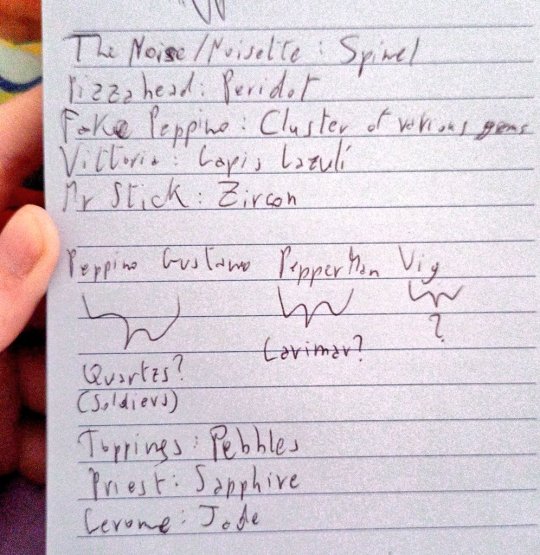 The Noise/Noisette: Spinel
Pizzahead: Peridot
Fake Peppino: Cluster of various gems
Vittorio: Lapis Lazuli
Mr Stick: Zircon
Peppino Gustavo PepperMan Vig
?
Larimar?
Quartzs?
(Soldiers)
Toppings: Pebbles
Priest: Sapphire
Gerome: Jade